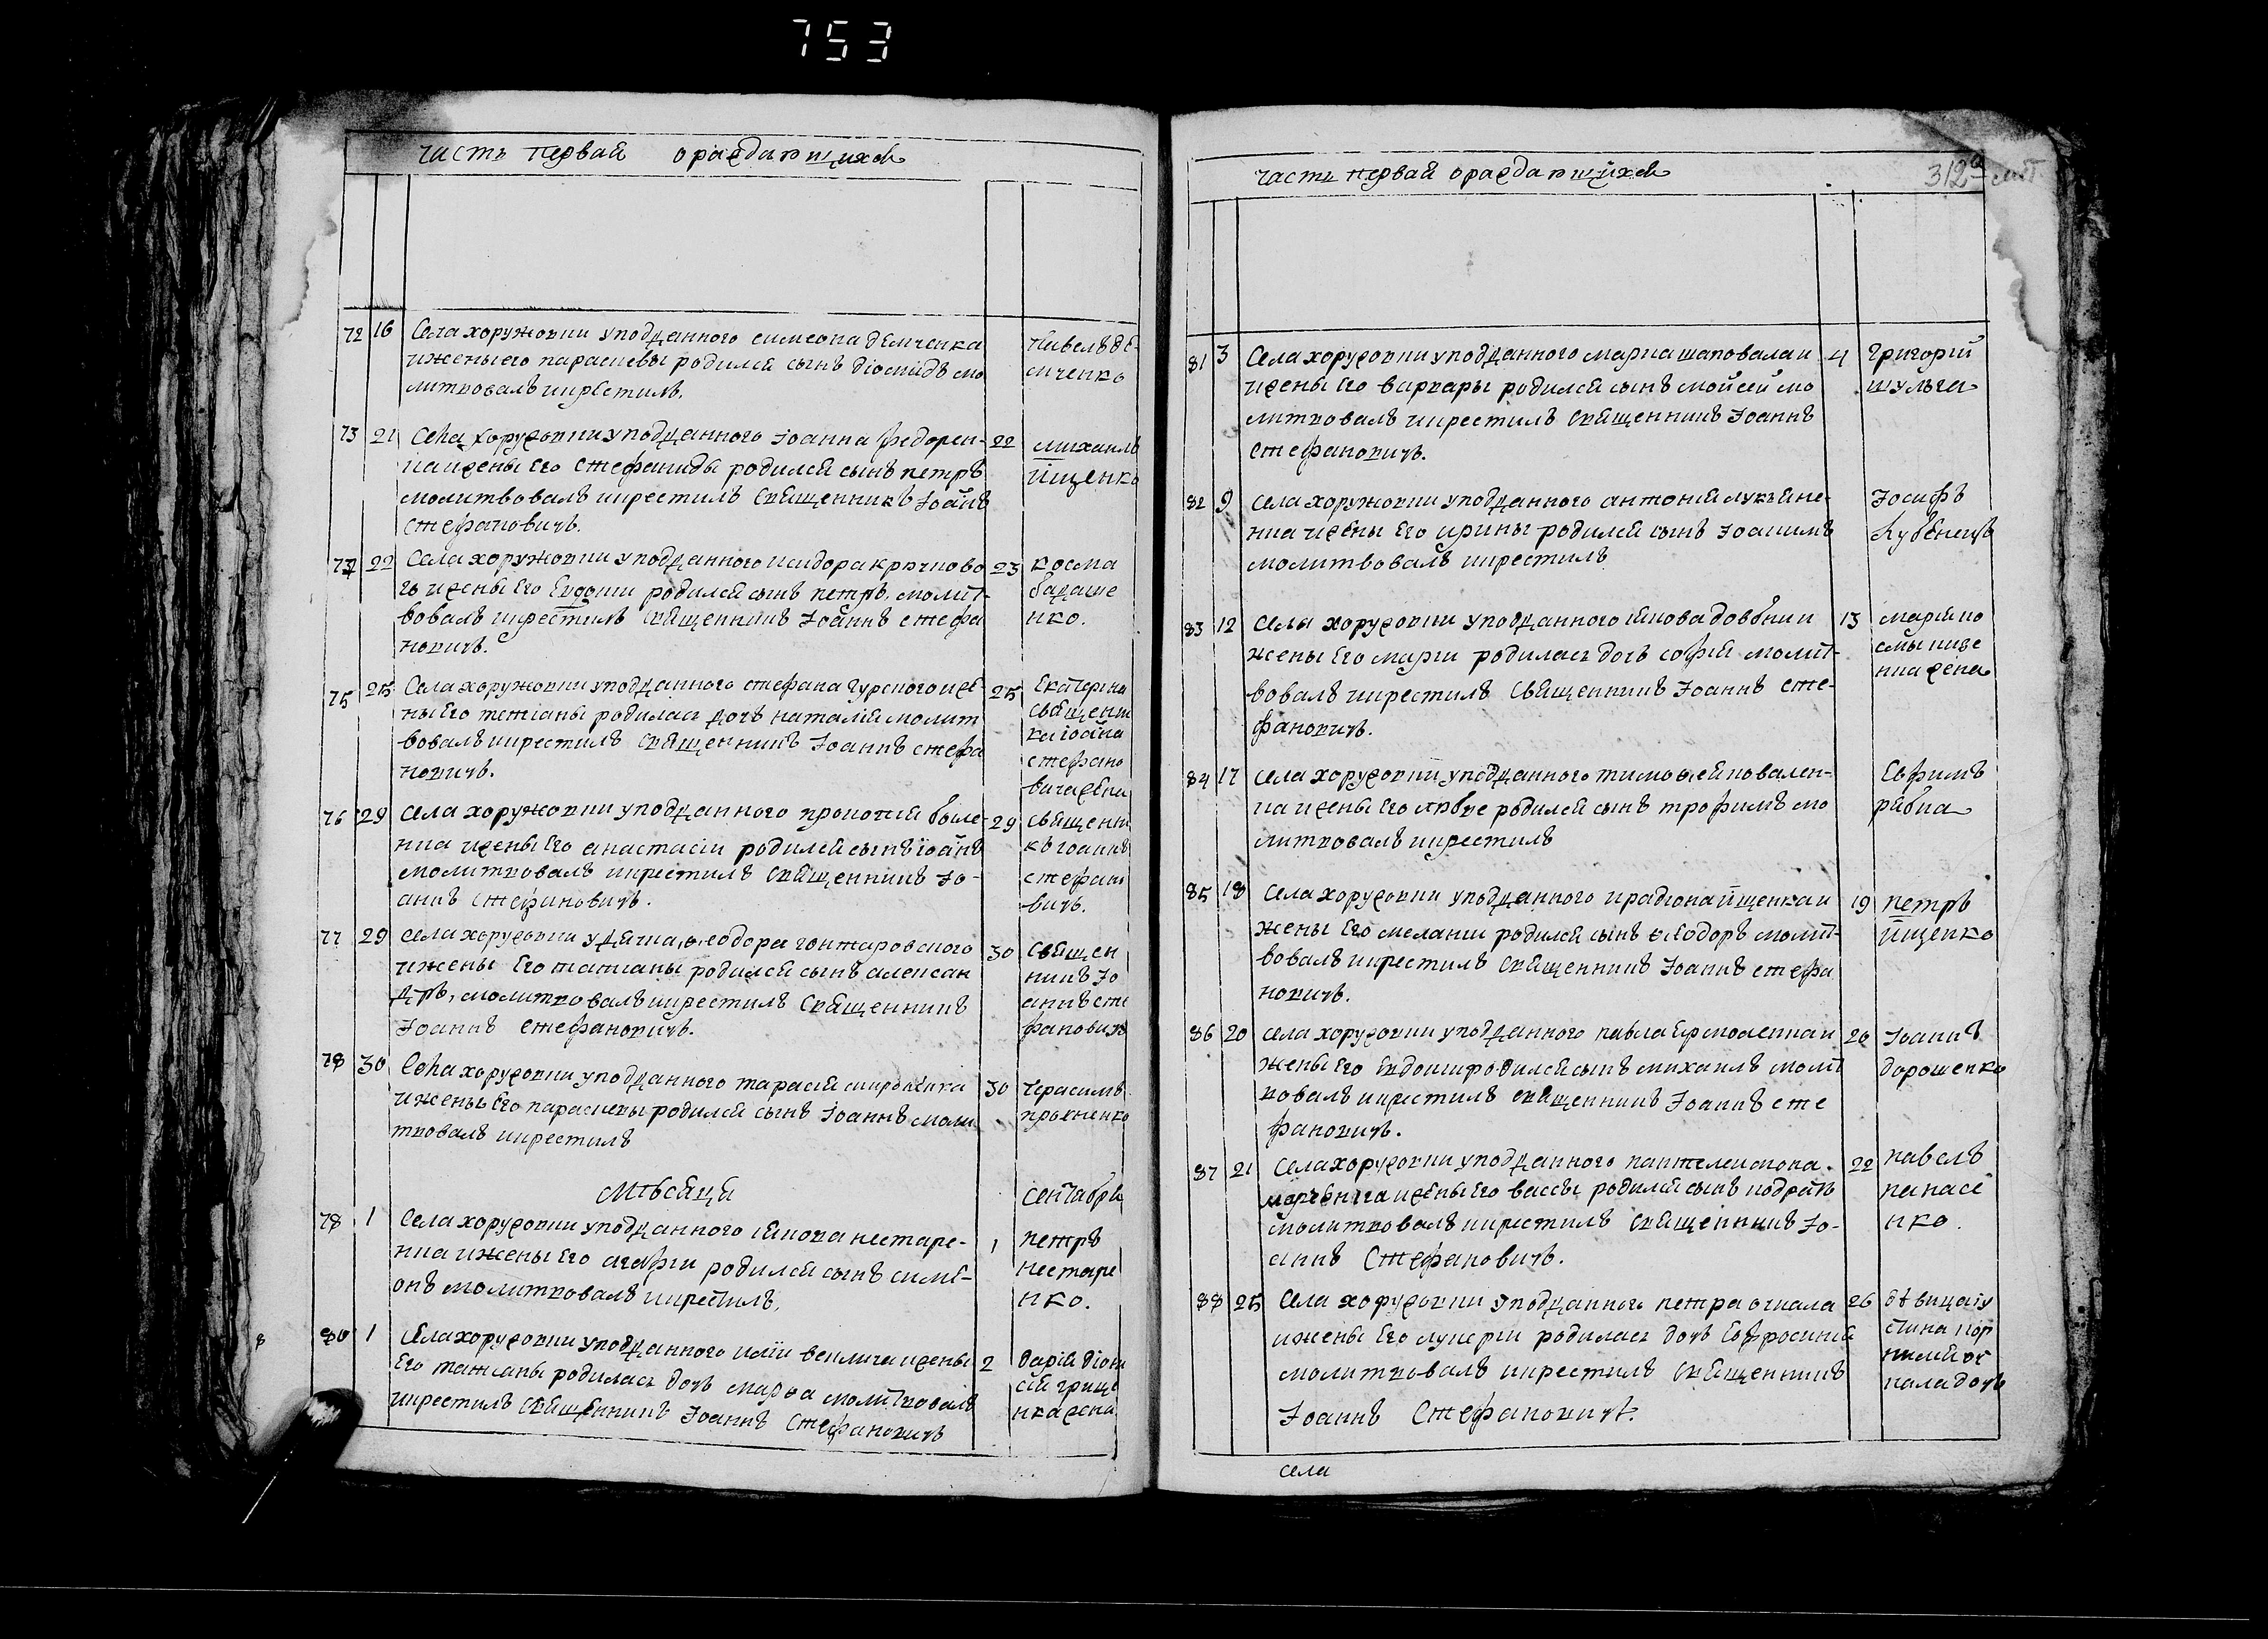 753
часть первая о раждающихся
72 16 Села хоружовки у подданного симеона демченка
и жены его параскевы родился сынъ діомидъ мо
литвовалъ и крестилъ.
павелъ де-
мченко
73 21 Села хоружовки у подданного Іоанна федорен-
ка и жены его стефаниды родился сынъ петръ
молитвовалъ и крестилъ священникъ Іоаннъ
стефановичъ.
22 михаилъ
ищенко
74 22 Села хоружовки у подданного исидора крючково
го и жены его Евдокии родился сынъ петръ, молит-
вовалъ и крестилъ священникъ Іоаннъ стефа
новичъ.
23 косма
бараше
нко.
75 25 Села хоружовки у подданного стефана гурского и же-
ны его татіаны родилась дочь наталія молит
вовалъ и крестилъ священникъ Іоаннъ стефа
новичъ.
25 Екатерина
священни
ка іоанна
стефано
вича жена
76 29 Села хоружовки у подданного прокопія биле-
нка и жены его анастасіи родился сынъ іоаннъ
молитвовалъ и крестилъ священникъ Іо-
аннъ Стефановичъ.
29 священни
къ іоаннъ
стефано
вичъ.
77 29 Села хоружовки у дячка ѳеодора гонтаровского
и жены его татіаны родился сынъ алексан
дръ, молитвовалъ и крестилъ священникъ
Іоаннъ стефановичъ.
30 Священ
никъ Іо
аннъ сте
фановичъ
78 30 Села хоружовки у подданного тарасія
и жены его параскевы родился сынъ Іоаннъ моли
твовалъ и крестилъ
30 герасимъ
Мѣсяца сентября
78 1 Села хоружовки у подданного іякова нестаре-
нка и жены его агафіи родился сынъ симе-
онъ молитвовалъ и крестилъ.
1 петръ
нестаре
нко.
80 1 Села хоружовки у подданного иліи велича и жены
его татіаны родилась дочь марѳа молитвовалъ
и крестилъ священникъ Іоаннъ Стефановичъ
2 дарія діони
сія грище
нка жена
часть первая о раждающихся
312а
81 3 Села хоружовки у подданного марка шаповала и
жены его варвары родился сынъ мойсей мо
литвовалъ и крестилъ священникъ Іоаннъ
стефановичъ.
4 григорій
шульга
82 9 Села хоружовки у подданного антонія лукьяне-
нка и жены его ирины родился сынъ Іоакимъ
молитвовалъ и крестилъ
Іосифъ
лубенецъ
83 12 Села хоружовки у подданного іякова довбни и
жены его марии родилась дочь софія молит-
вовалъ и крестилъ священникъ Іоаннъ сте-
фановичъ.
13 марія
нка жена
84 17 Села хоружовки у подданного тимоѳея ковален-
ка и жены его родился сынъ трофимъ мо
литвовалъ и крестилъ
Ефимъ
рябка
85 18 Села хоружовки у подданного ирадіона ищенка и
жены его меланіи родился сынъ ѳеодоръ молит-
вовалъ и крестилъ священникъ Іоаннъ стефа
новичъ.
19 петръ
ищенко
86 20 Села хоружовки у подданного павла Ермоленка и
жены его Евдокии родился сынъ михаилъ молит
вовалъ и крестилъ священникъ Іоаннъ сте
фановичъ.
20 Іоаннъ
дорошенко
87 21 Села хоружовки у подданного пантелеимона
марченка и жены его вассы родился сынъ кодратъ
молитвовалъ и крестилъ священникъ Іо-
аннъ Стефановичъ.
22 павелъ
панасе
нко.
88 25 Села хоружовки у подданного петра очкала
и жены его лукеріи родилась дочь Евфросинія
молитвовалъ и крестилъ священникъ
Іоаннъ Стефановичъ.
26 дѣвица іу
стина кор
нилія оч
кала дочь
села